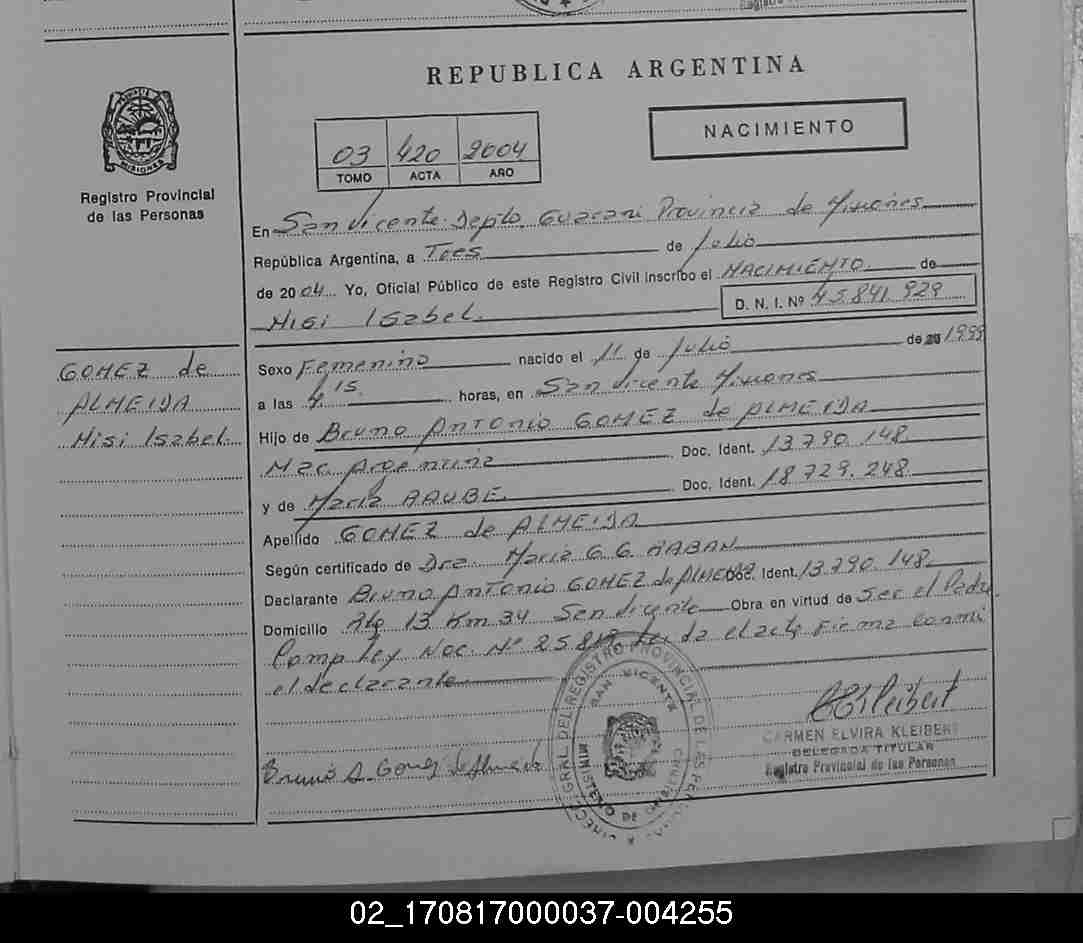 REPUBLICA ARGENTINA
NACIMIENTO
03 420 2004
TOMO ACTA AÑO
MISIONES
Registro Provincial
de las Personas
En San Vicente Depto. Guarani Provincia de Misiones
República Argentina, a Tres de Julio
de 2004 Yo, Oficial Público de este Registro Civil inscribo el NACIMIENTO de
Misi Isabel. D. N. I. Nº 45.841.929
GOMEZ de
ALMEIDA
Misi Isabel.
Sexo Femenino nacido el 11 de Julio de 20 1999
a las 4.15 horas, en San Vicente Misiones
Hijo de Bruno Antonio GOMEZ de ALMEIDA
Nac. Argentina Doc. Ident. 13.790.148
y de Maria RAUBE. Doc. Ident. 18.729.248
Apellido GOMEZ de ALMEIDA
Según certificado de Dra. Maria G. G. RABAN
Declarante Bruno Antonio GOMEZ de ALMEIDA Doc. Ident. 13.790.148
Domicilio Rta 13 Km 34 San Vicente Obra en virtud de Ser el Padre
Comp Ley Nac. Nº 25.819 el acto firma conmi
el declarante
SAN VICENTE
CARMEN ELVIRA KLEIBERT
DELEGADA TITULAR
Registro Provincial de las Personas
Bruno A. Gomez de Almeida
02_170817000037-004255